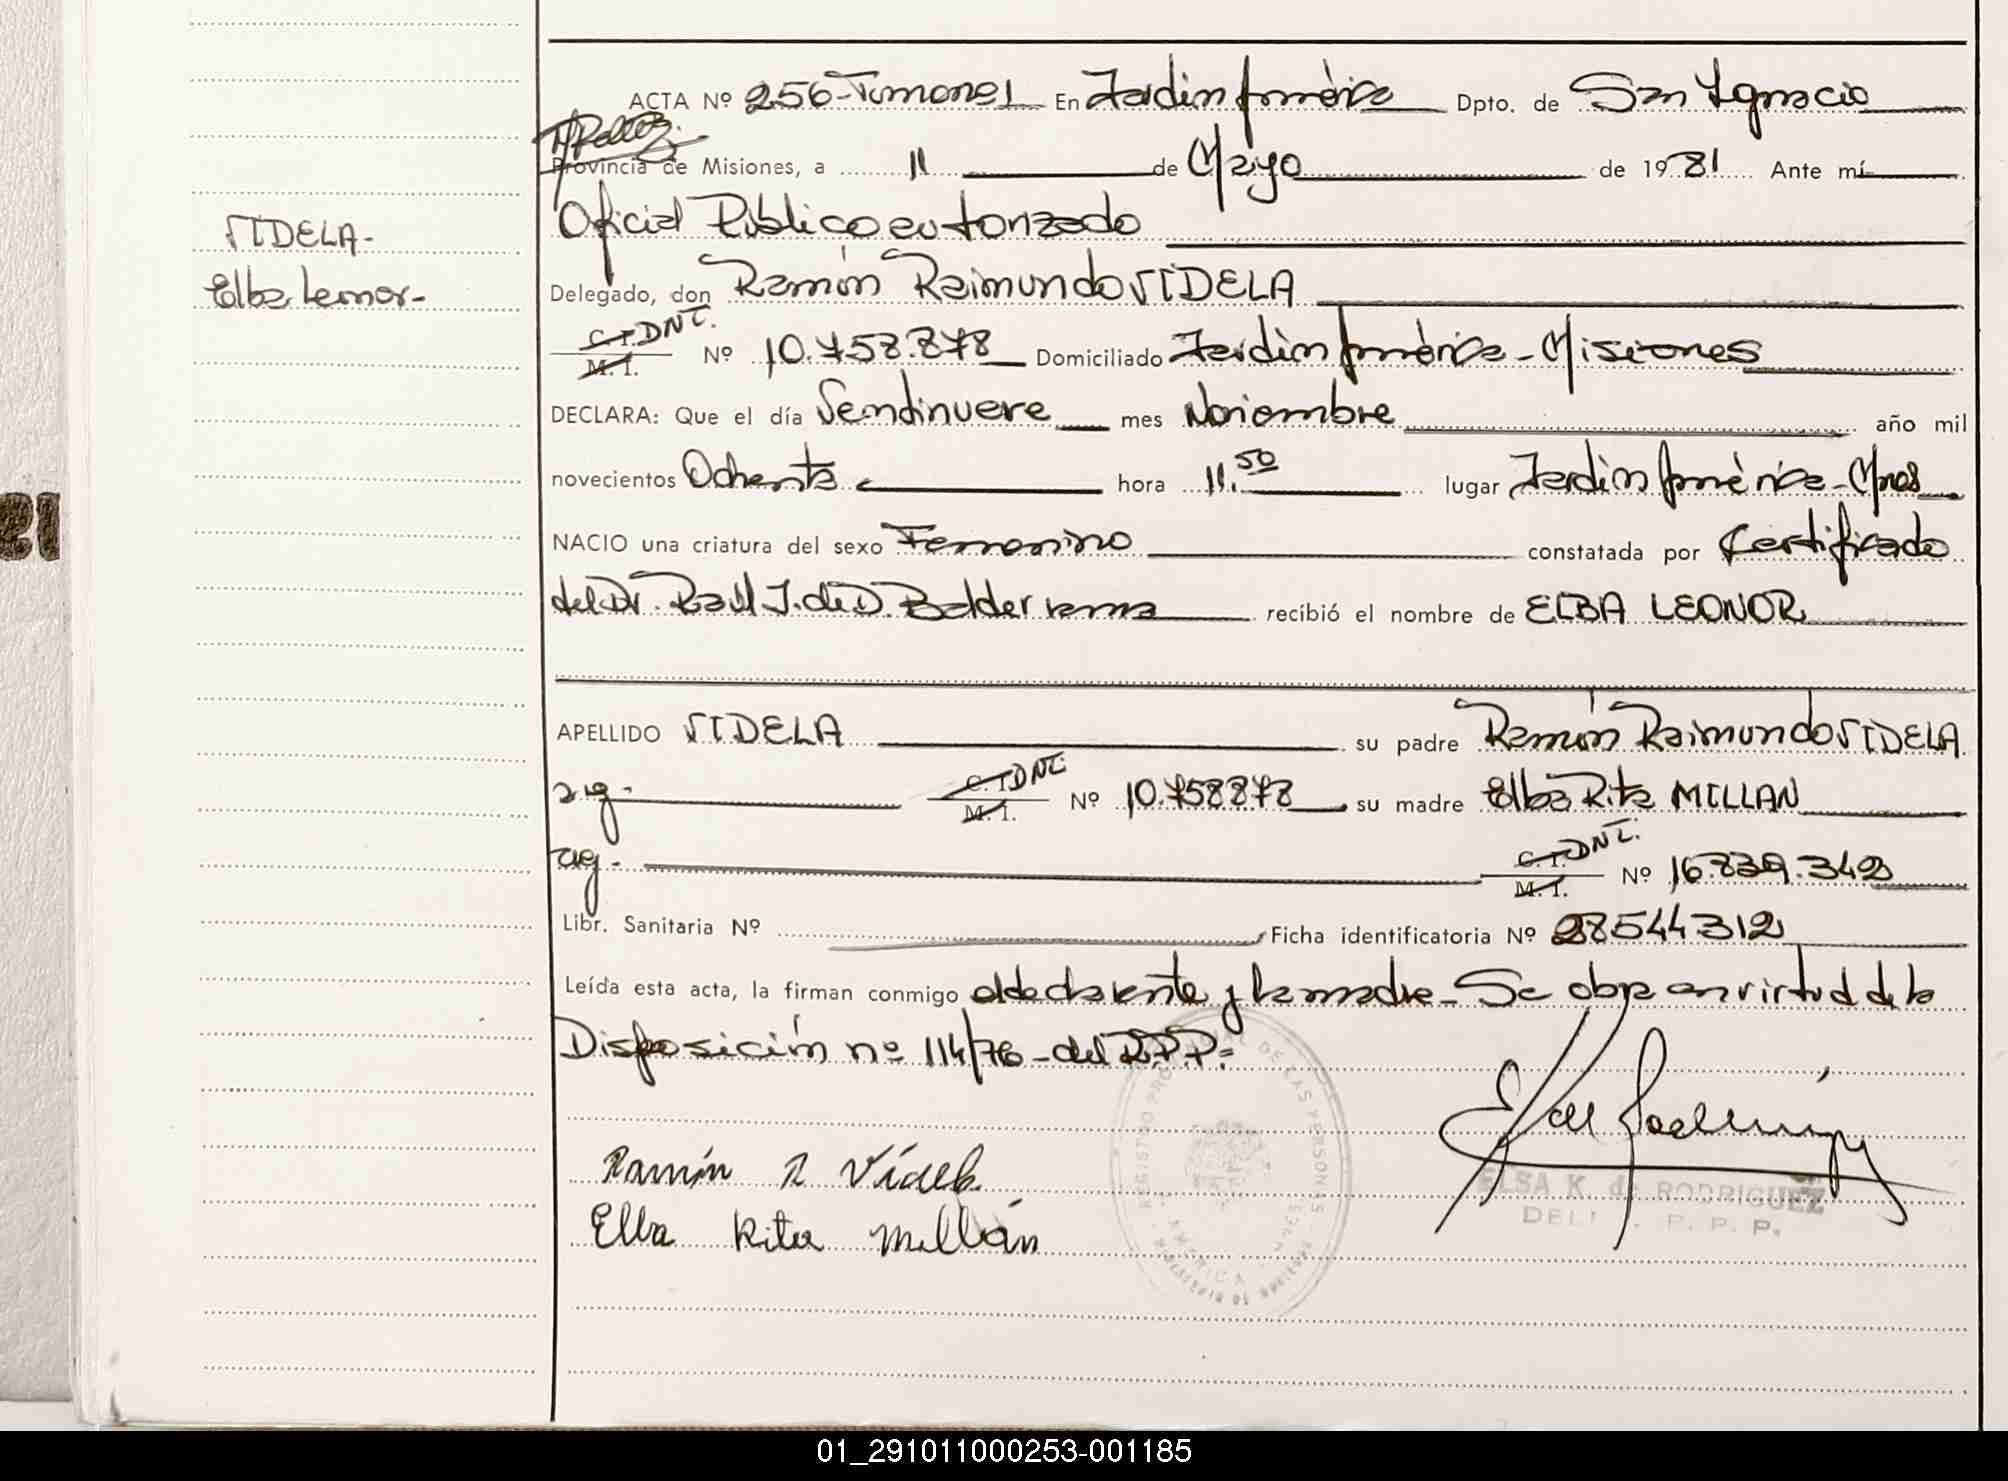 ACTA Nº 256-Tomo nº1 En Jardín América Dpto. de San Ignacio
Provincia de Misiones, a 11 de Mayo de 1981 Ante mí
Oficial Público autorizado
VIDELA-
Elba Leonor-
Delegado, don Ramón Raimundo VIDELA
C. I. DNI.
M. I. Nº 10.758.878 Domiciliado Jardín América - Misiones
DECLARA: Que el día mes Noviembre año mil
novecientos Ochenta hora 11.50 lugar Jardín América - Mnes
NACIO una criatura del sexo Femenino constatada por Certificado
del Dr. Raúl J. de D. Balderrama recibió el nombre de ELBA LEONOR
APELLIDO VIDELA su padre Ramón Raimundo VIDELA
arg. C. I. DNI. M. I. Nº 10.758878 su madre Elba Rita MILLAN
arg. C. I. DNI. M. I. Nº 16.829.342
Libr. Sanitaria Nº Ficha identificatoria Nº 28544312
Leída esta acta, la firman conmigo el declarante y la madre - Se obra en virtud de la
Disposición nº 114/76 - del R.P.P.=
Ramón R Videla
Elba Rita Millán
ELSA K. de RODRIGUEZ
R. P. P.
01_291011000253-001185